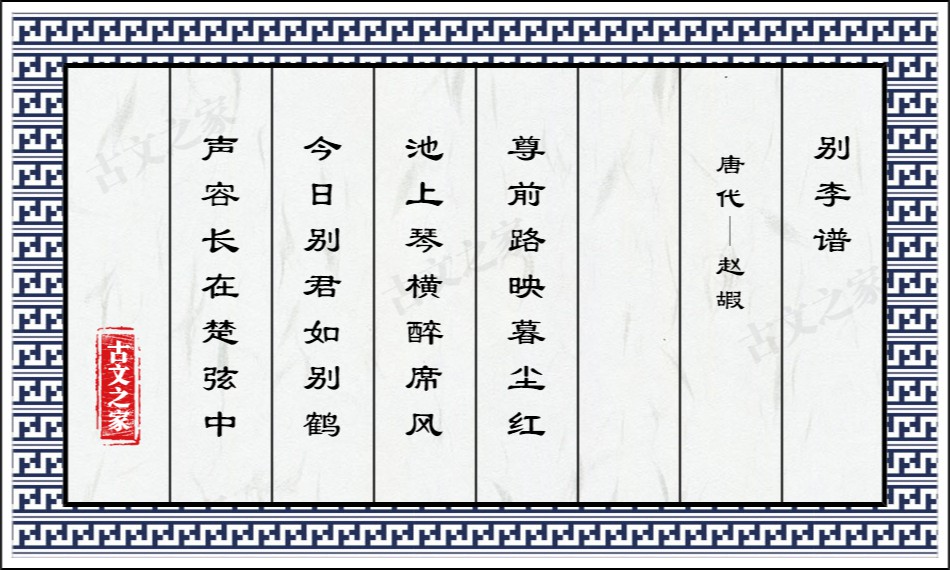 别李谱
唐代—赵嘏
尊前路映暮尘红
池上琴横醉席风
今日别君如别鹤
声容长在楚弦中
古文之家
古文之家
古文之家
古文之家